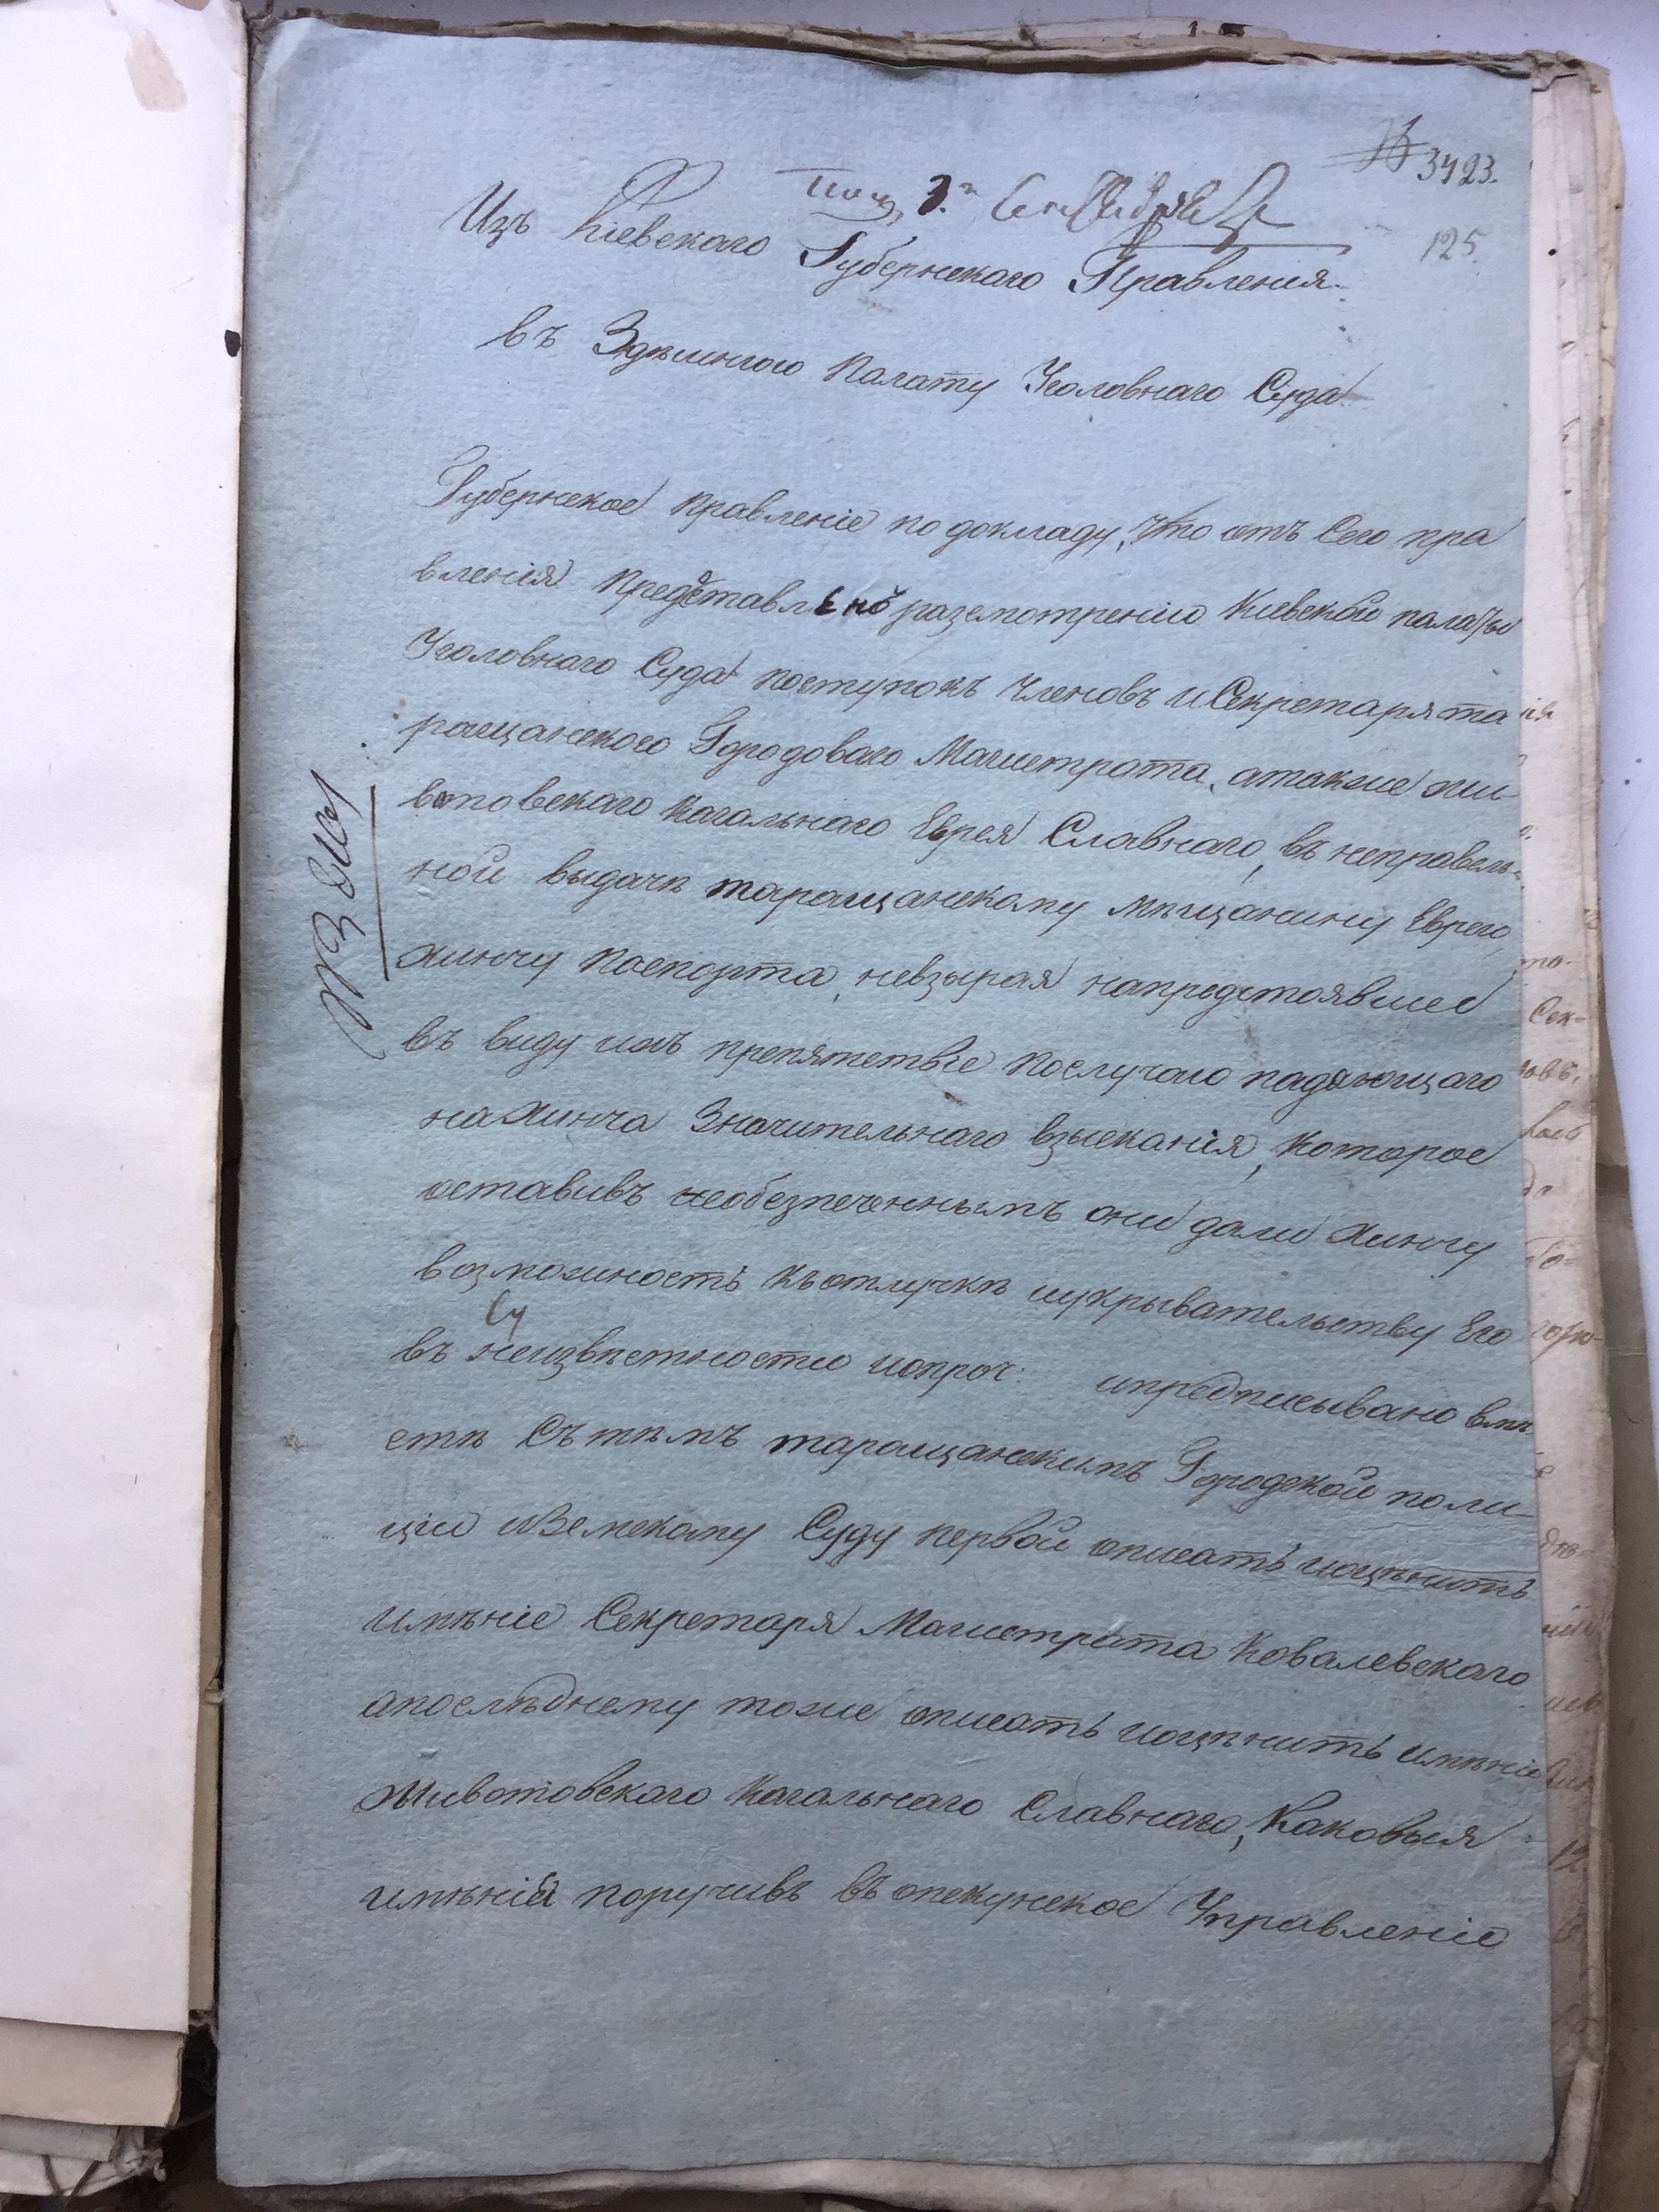 № 3423.
Пол. 3.го Сентября
125
Изъ Кіевскаго Губернскаго Правленія.
въ Здѣшнюю Палату Уголовнаго Суда
Губернское Правленіе по докладу, что отъ Сего пра
вленія Представлено разсмотренію Кіевской палаты
Уголовнаго Суда поступокъ Членовъ и Секретаря та
ращанского Городоваго Магистрата, атакже жи-
вотовскаго Кагальнаго Еврея Славнаго, въ неправель-
ной выдачѣ таращанскому мѣщанину Еврею
Хинчу Паспорта, невзирая напредстоявшее
въ виду ихъ препятствіе Послучаю падающаго
на Хинча Значительнаго взысканія, Которое
оставивъ необезпеченнымъ они дали Хинчу
возможность Къотлучкѣ иукрывательству Его
въ неизвѣстности ипроч: ипредписывано вмѣ
стѣ Съ тѣмъ таращанскимъ Городской поли-
ціи иЗемскому Суду первой описать иоцѣнить
имѣніе Секретаря Магистрата Ковалевскаго
апослѣднему тоже описать иоцѣнить имѣніе
Животовскаго Кагальнаго Славнаго, Каковыя
имѣнія поручивъ въ опекунское Управленіе